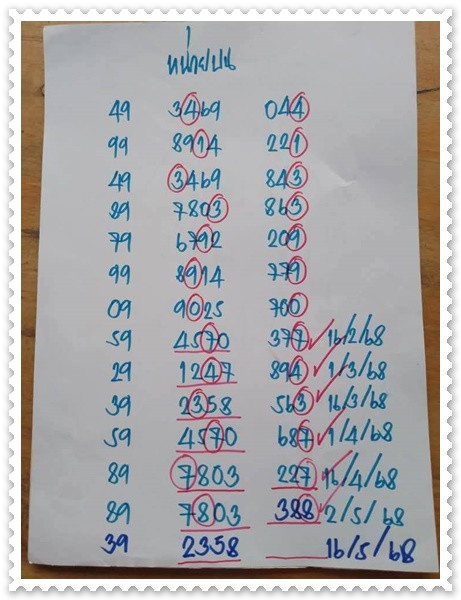 หน่วยบน
49 3469 044
99 8914 221
49 3469 843
89 7803 865
79 6792 209
99 8914 779
09 9025 700
59 4570 377 16/2/68
29 1247 894 1/3/68
39 2358 563 16/3/68
59 4570 687 1/4/68
89 7803 227 16/4/68
89 7803 388 2/5/68
39 2358 16/5/68